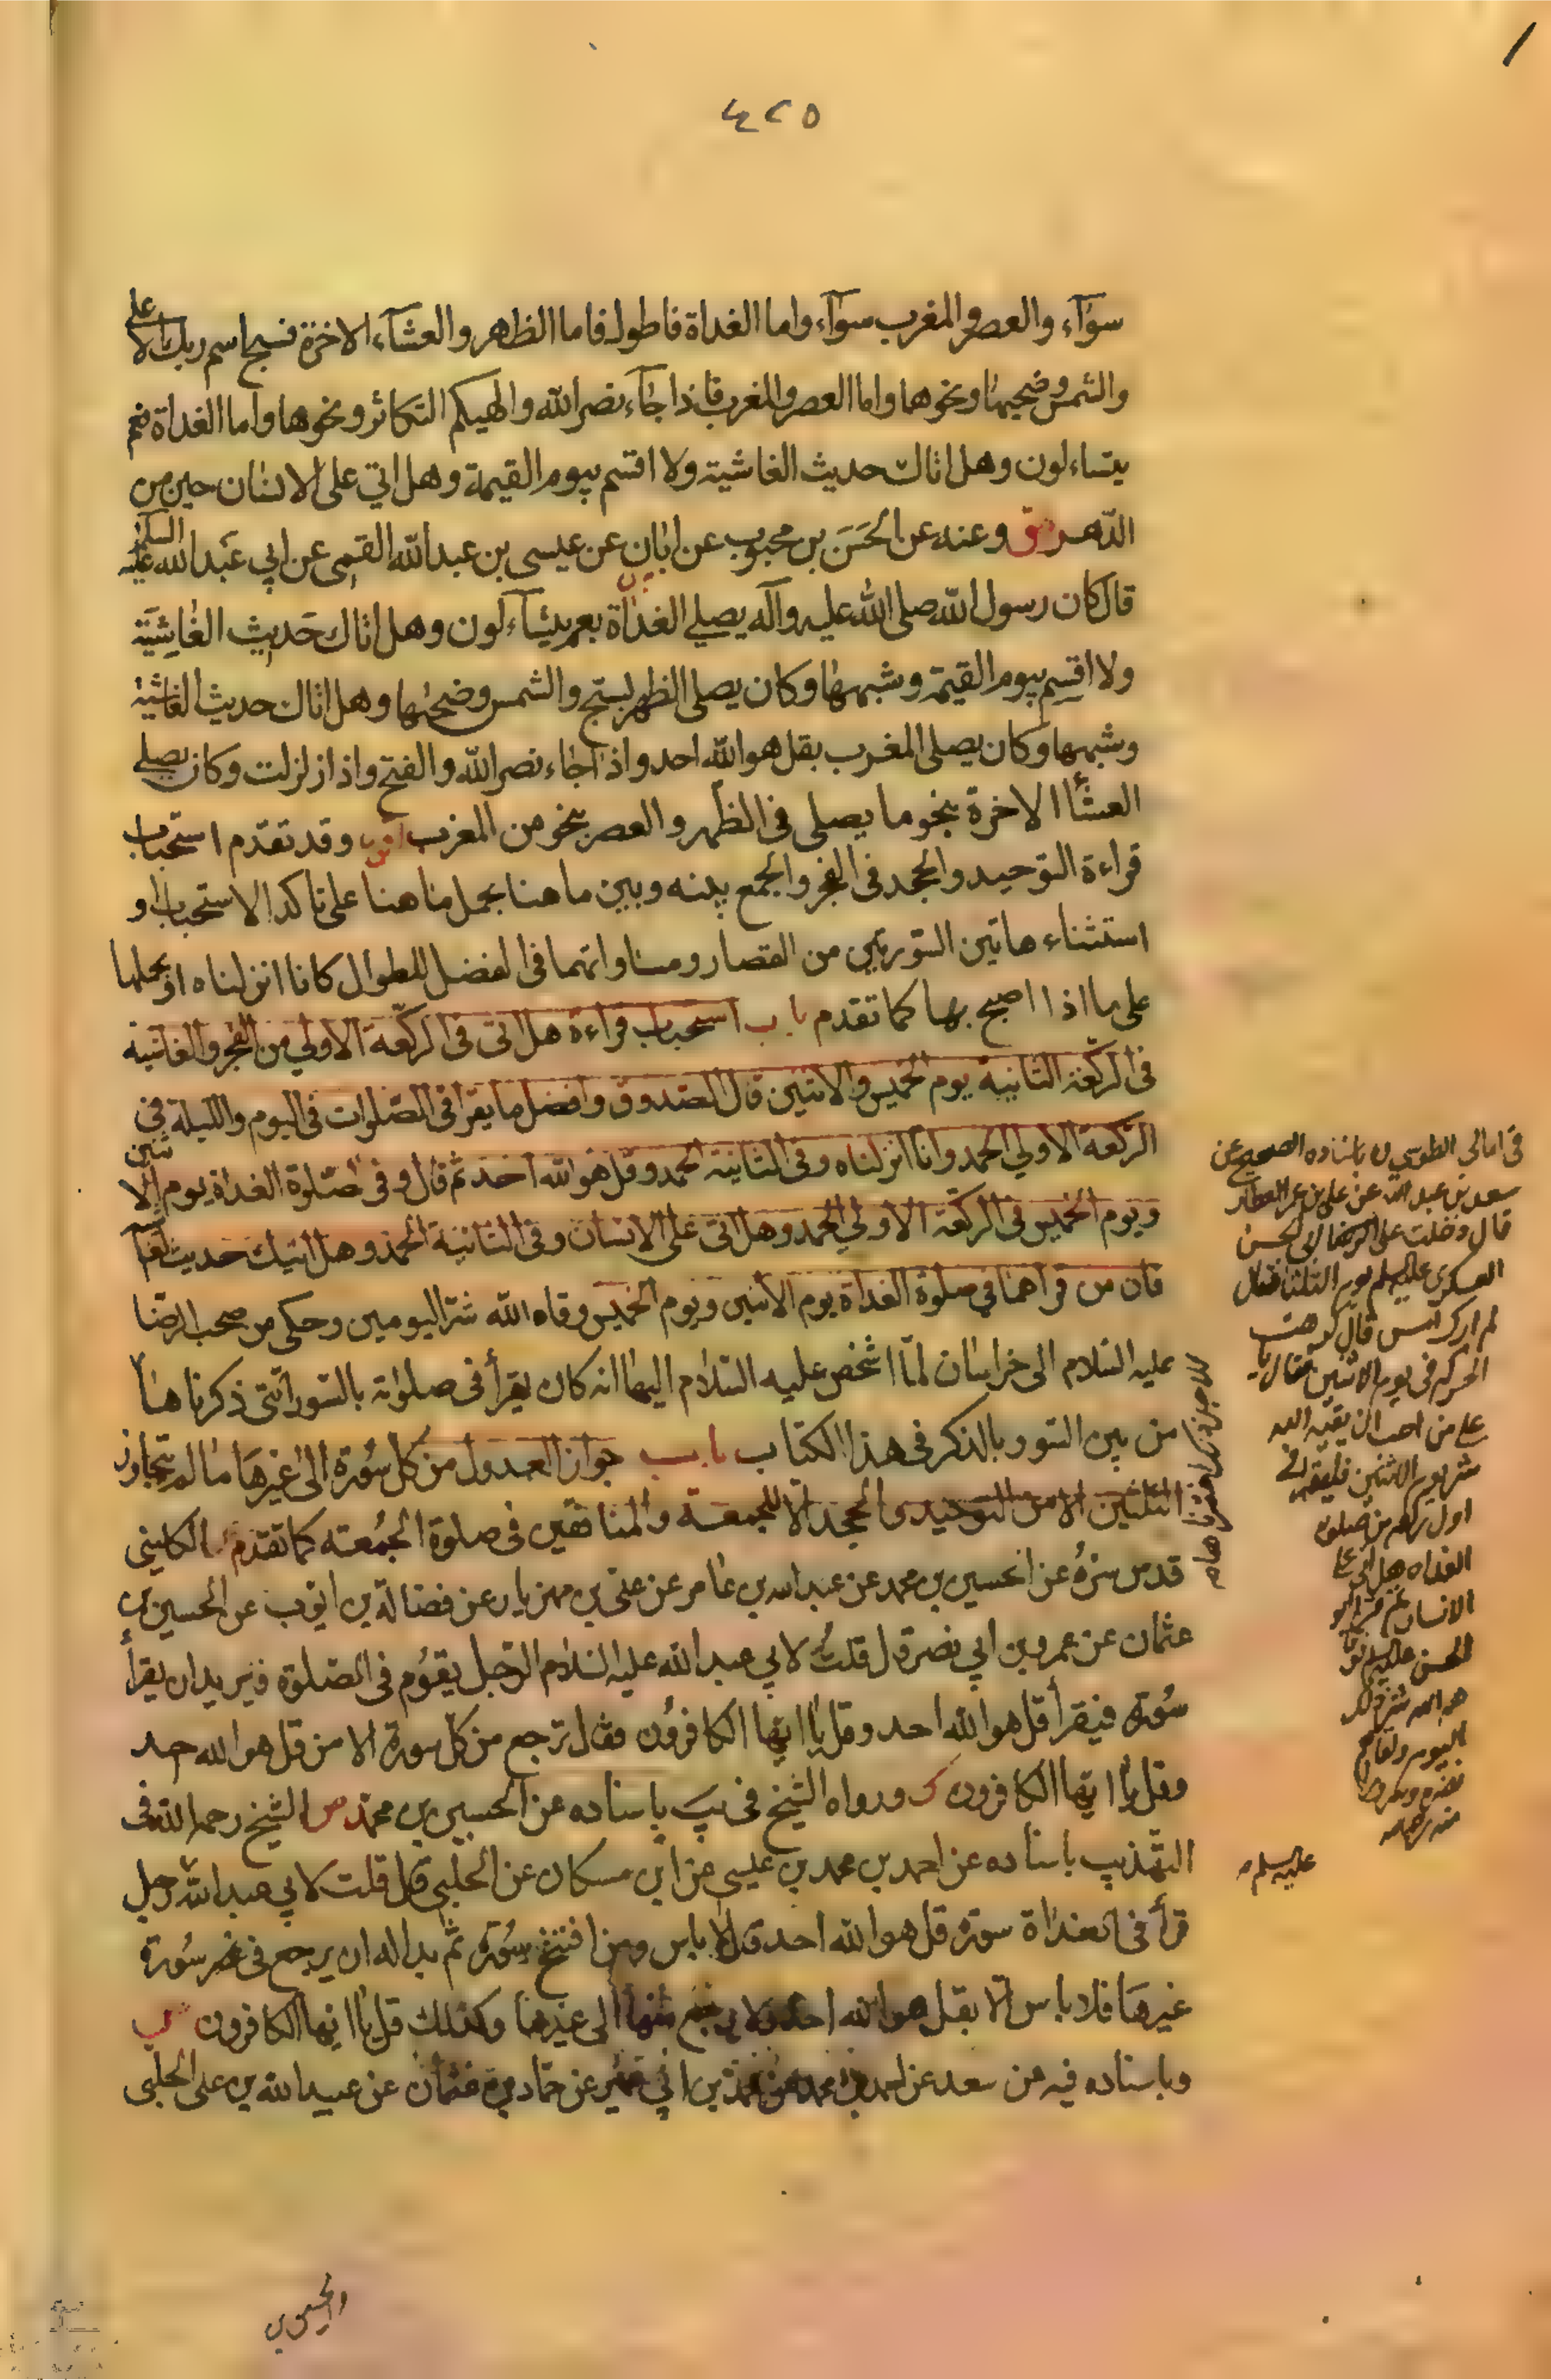 ٤٢٥
سوٓاء والعصر والمغرب سوٓاء واما الغداة فاطول فاما الظهر والعشآء الاخرة فسبح اسم ربك الاعلى
والشمس وضحيها ونحوهما واما العصر والمغرب فاذا جآء نصر الله والهيكم التكاثر ونحوها واما الغداة فعم
يتساءلون وهل اتاك حديث الغاشية ولا اقسم بيوم القيمة وهل اتي على الانسان حين من
الدّهر وعنه عن الحَسَن بن محبوب عن ابان عن عيسى بن عبد الله القمى عن ابي عَبد الله عليه السلام
قال كان رسول الله صلى الله عليه وآله يصلي الغداة بعم يتسآءلون وهل اتاك حَديث الغاشِيَة
ولا اقسِم بيوم القيمة وشبهها وكان يصلى الظهر بسبّح والشمس وضحيها وهل اتاك حديث الغاشية
وشبهها وكان يصلى المغرب بقل هو الله احد واذا جاء نصر الله والفتح واذا زلزلت وكان يصلي
العشآا الاخرة بنحو ما يصلى فى الظهر والعصر بنحو من المغرب وقد تقدّم استحباب
قراءة التوحيد والجحد فى الفجر والجمع بينه وبين ما هنا بحمل ما هنا على تاكد الاستحباب او
استثناء هاتين السّورتين من القصار ومساواتهما فى الفضل للطوال كانا انزلناه او بحملها
على ما اذا اصبح بها كما تقدم باب استحباب قراءة هل اتى فى الركعة الاولي من الفجر والغاشية
فى الركعة الثانية يوم الخميس والاثنين قال الصّدوق وافضل ما يقرا فى الصّلوات فى اليوم والليلة فى
الركعة الاولي الحمد وانا انزلناه وفى الثانية الحمد وقل هو الله احد ثم قال وفى صَلوة الغداة يوم الاثنين
ويوم الخميس فى الركعة الاولي الحمد وهل اتى على الانسان وفى الثانية الحمد وهل اتيك حديث الغا
فان من قراهما في صلوة الغداة يوم الاثنين ويوم الخميس وقاه الله شرّ اليومين وحكى من صحب الرضا
عليه السّلام الى خراسان لمّا اشخص عليه السّلام اليها انه كان يقرأ فى صلوٰته بالسّور التى ذكرناها
من بين السّور بالذكر فى هذا الكتاب باب جواز العدول من كل سُورة الى غيرهَا ما لم يتجاوز
الثلثين الا من التوحيد والجحد الا للجمعة والمنافقين فى صلوة الجُمعة كما تقدم الكلينى
قدس سرّهُ عن الحسين بن محمد عن عبد الله بن عامر عن علىّ بن مهزيار عن فضالة بن ايّوب عن الحسين بن
عثمان عن عمرو بن ابي نصر قال قلتُ لابي عبد الله عليه السّلام الرّجل يقوم فى الصّلوة فيريد ان يقرأ
سُورة فيقرأ قل هو الله احد وقل يا ايّها الكافرون فقال ترجع من كل سورة الا من قل هو الله احد
وقل يا ايّها الكافرون ورواه الشّيخ فى يَب باسناده عن الحسين بن محمّد الشيخ رحمه الله فى
التّهذيب باسناده عن احمد بن محمد بن عيسى عن ابن مسكان عن الحلبى قال قلت لابي عبد الله رجل
قرأ فى الغداة سورة قل هو الله احد قال لا باس ومن افتتح بسُورة ثم بدا له ان يرجع فى سُورة
غيرهَا فلا باس الا بقل هو الله احد ولا يرجع منها الى غيرها وكذلك قل يا ايّها الكافرون
وباسناده فيه عن سعد عن احمد بن محمد عن محمد بن ابي عمير عن حمّاد بن عثمان عن عبيد الله بن على الحلبى
فى امالى الطوسي باسناده الصحيح عن
سعد بن عبد الله عن على بن عمر العطار
قال دخلت على ابى الحسن
العسكرى عليه السلم يوم الثلثا فقال
لم ارك امس قال كرهت
الحركة فى يوم الاثنين فقال يا
على من احب ان يقيه الله
شر يوم الاثنين فليقرا فى
اول ركعه من صلوة
الغداه هل اتى على
الانسان ثم قرا ابو
الحسن عليه السلم فو
قاهم الله شر ذلك
اليوم ولقاهم
نضرة وسرورا
عليه السلم